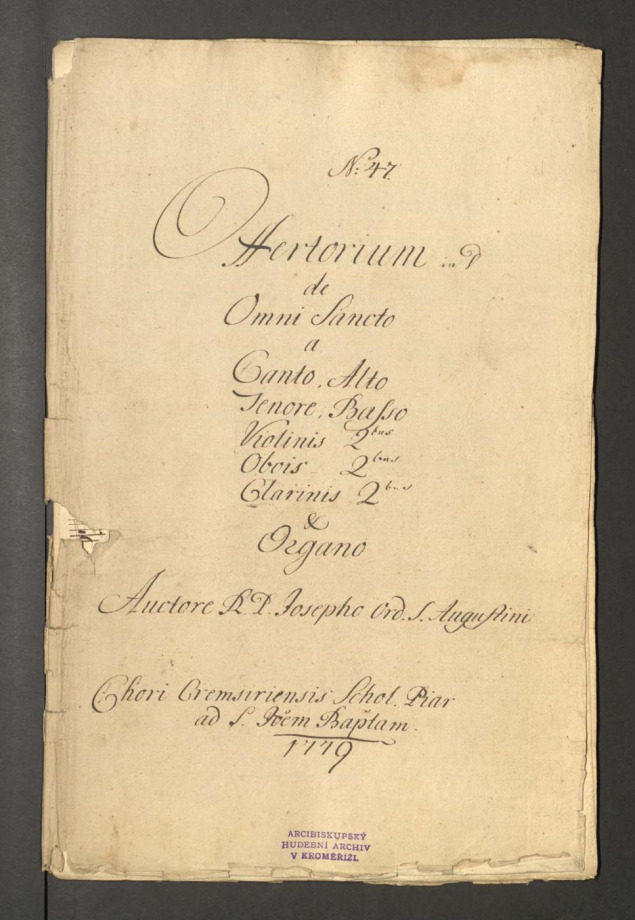 N: 47.
Offertorium in D
de
Omni Sancto
a
Canto, Alto
Tenore, Baſso
Violinis 2bus
Obois 2bus
Clarinis 2bus
&
Organo
Auctore R. P. Josepho Ord. S. Augustini
Chori Cremsiriensis Schol. Piar
ad S. Joēm Bap̄tam.
1779
ARCIBISKUPSKÝ
HUDEBNÍ ARCHIV
V KROMĚŘÍŽI.